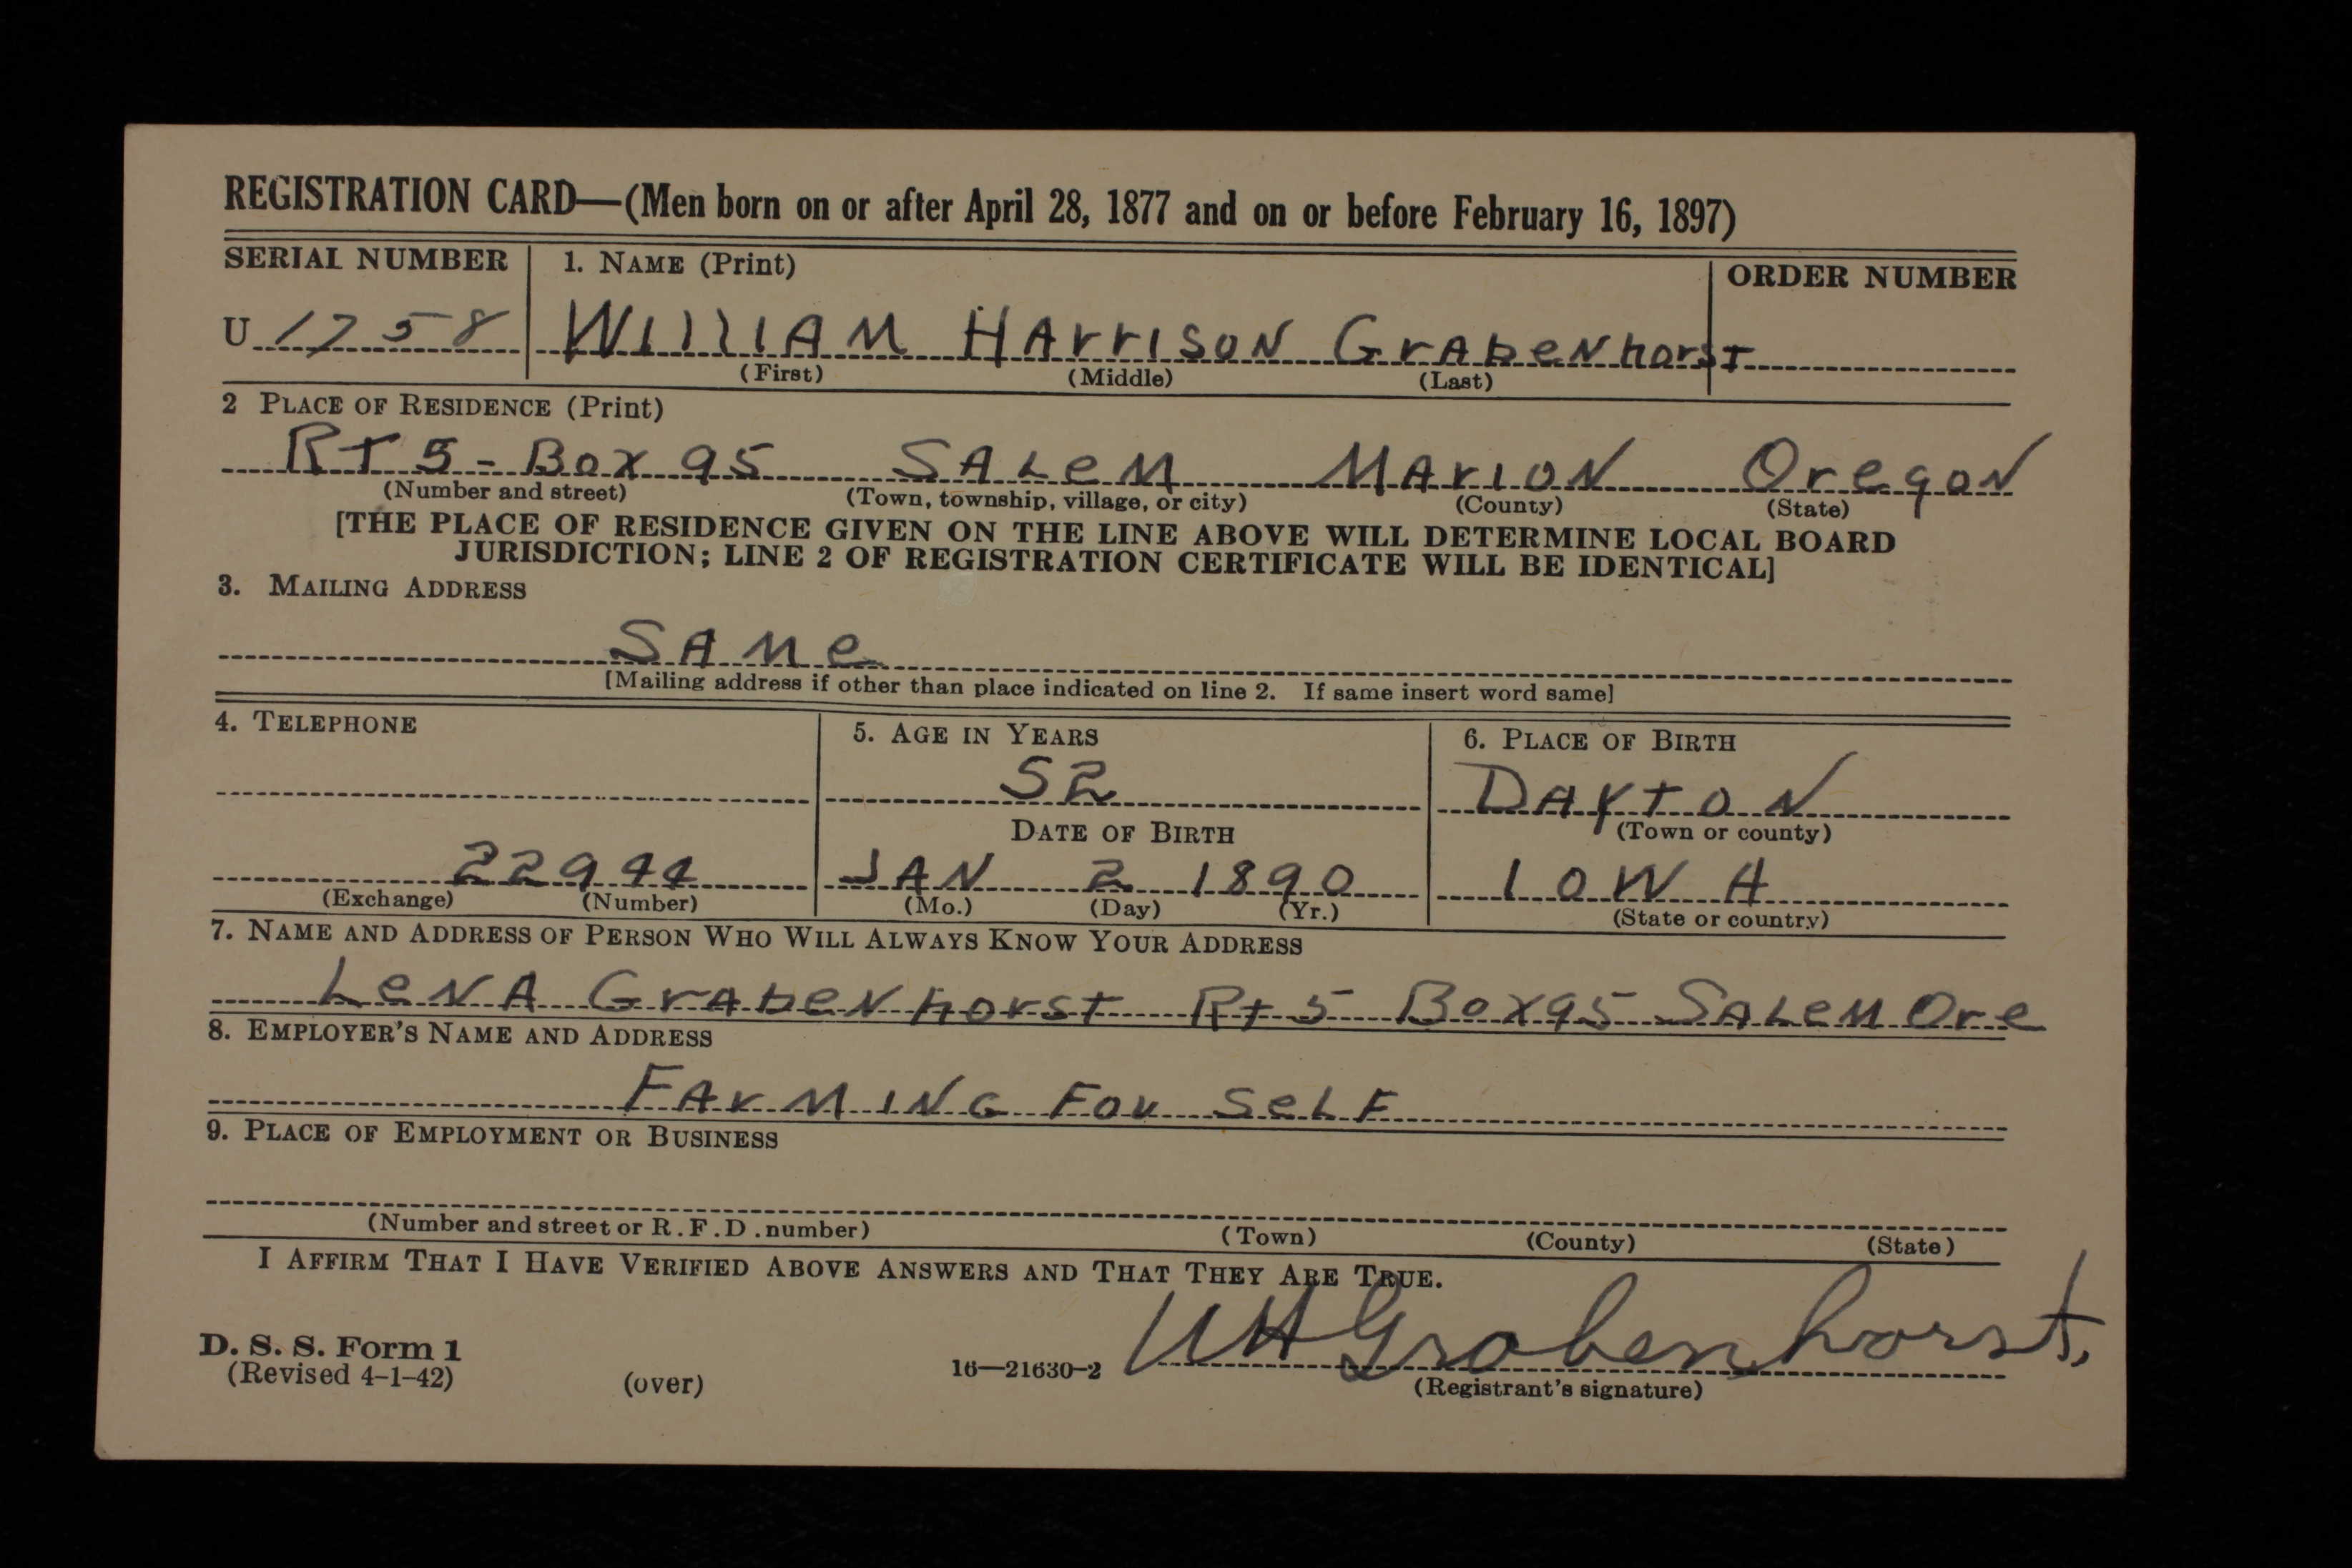 REGISTRATION CARD—(Men born on or after April 28, 1877 and on or before February 16, 1897)
SERIAL NUMBER 1. NAME (Print) ORDER NUMBER
U 1758 WILLIAM HArrISON GrAbeNhorsT
(First) (Middle) (Last)
2 PLACE OF RESIDENCE (Print)
RT 5 - Box 95 SALeM MArION OregoN
(Number and street) (Town, township, village, or city) (County) (State)
[THE PLACE OF RESIDENCE GIVEN ON THE LINE ABOVE WILL DETERMINE LOCAL BOARD
JURISDICTION; LINE 2 OF REGISTRATION CERTIFICATE WILL BE IDENTICAL]
3. MAILING ADDRESS
SAMe
[Mailing address if other than place indicated on line 2. If same insert word same]
4. TELEPHONE 5. AGE IN YEARS 6. PLACE OF BIRTH
52 DAYTON
DATE OF BIRTH (Town or county)
22944 JAN 2 1890 IOWA
(Exchange) (Number) (Mo.) (Day) (Yr.) (State or country)
7. NAME AND ADDRESS OF PERSON WHO WILL ALWAYS KNOW YOUR ADDRESS
LeNA GrAbeNhorst Rt 5 Box 95 SALeM Ore
8. EMPLOYER'S NAME AND ADDRESS
FArMING For SeLF
9. PLACE OF EMPLOYMENT OR BUSINESS
(Number and street or R. F. D. number) (Town) (County) (State)
I AFFIRM THAT I HAVE VERIFIED ABOVE ANSWERS AND THAT THEY ARE TRUE.
D. S. S. Form 1
(Revised 4-1-42) (over) 16—21630-2 WH Grabenhorst.
(Registrant's signature)